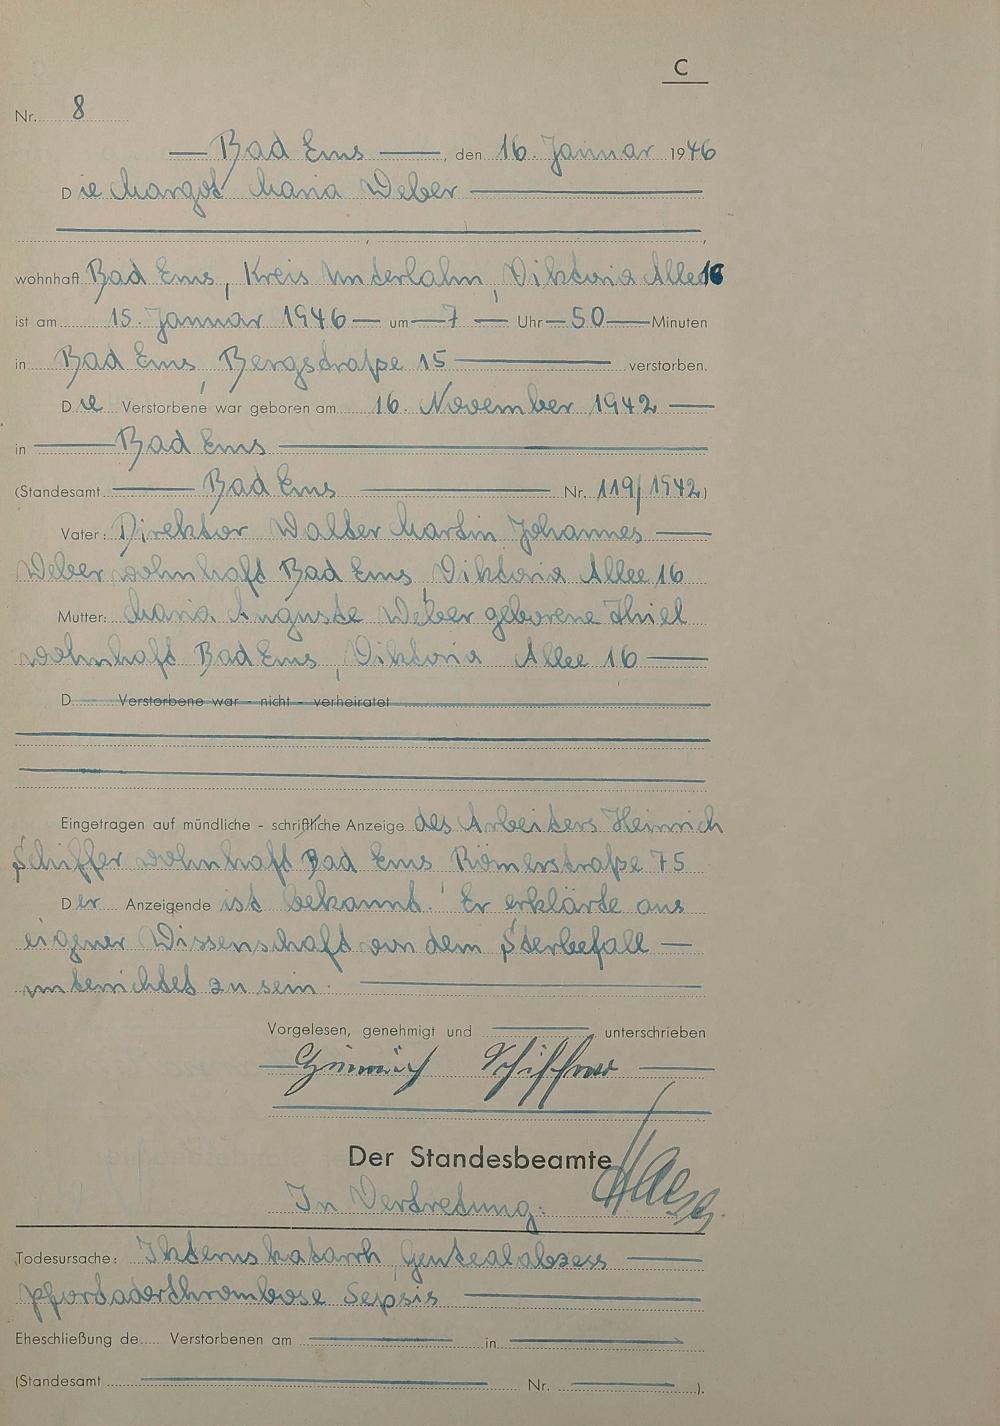 C
Nr. 8
Bad Ems, den 16. Januar 1946
Die Margot Maria Weber
wohnhaft Bad Ems, Kreis Unterlahn, Viktoria Allee 16
ist am 15. Januar 1946 um 7 Uhr 50 Minuten
in Bad Ems, Bergstraße 15 verstorben.
Die Verstorbene war geboren am 16. November 1942
in Bad Ems
(Standesamt Bad Ems Nr. 119/1942)
Vater: Direktor Walter Martin Johannes
Weber wohnhaft Bad Ems, Viktoria Allee 16
Mutter: Maria Auguste Weber geborene Thiel
wohnhaft Bad Ems, Viktoria Allee 16
D Verstorbene war - nicht - verheiratet
Eingetragen auf mündliche - schriftliche Anzeige des Arbeiters Heinrich
Schiffer wohnhaft Bad Ems Römerstraße 75
Der Anzeigende ist bekannt. Er erklärte aus
eigener Wissenschaft von dem Sterbefall
unterrichtet zu sein.
Vorgelesen, genehmigt und unterschrieben
Heinrich Schiffer
Der Standesbeamte
In Vertretung:
Todesursache: Ikteruskatarrh,
Pfordaderthrombose Sepsis
Eheschließung de Verstorbenen am in
(Standesamt Nr. ).